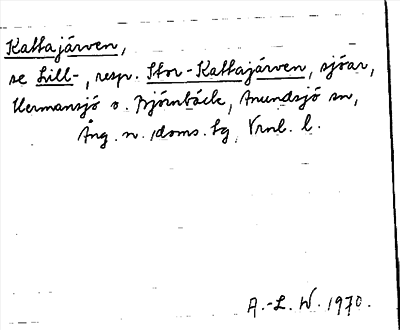 Kattajärven,
se Lill-, resp. Stor-Kattajärven, sjöar,
Hermansjö o. Björnbäck, Anundsjö sn,
Ång. n. doms. lg, Vrnl. l.
A.-L. W. 1970.